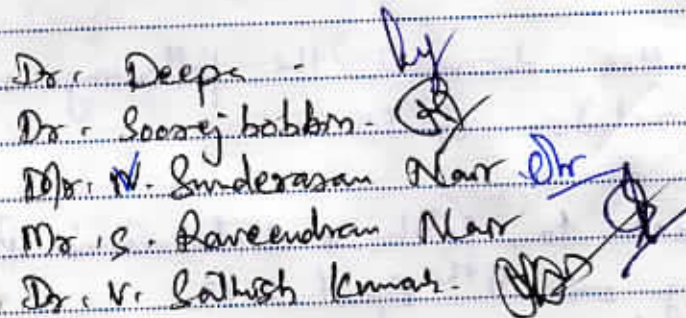 Dr. Deepa -
Dr. Sooraj bobbin -
Mr. N. Sunderasan Nair
Mr. S. Raveendran Nair
Dr. V. Sathish Kumar -